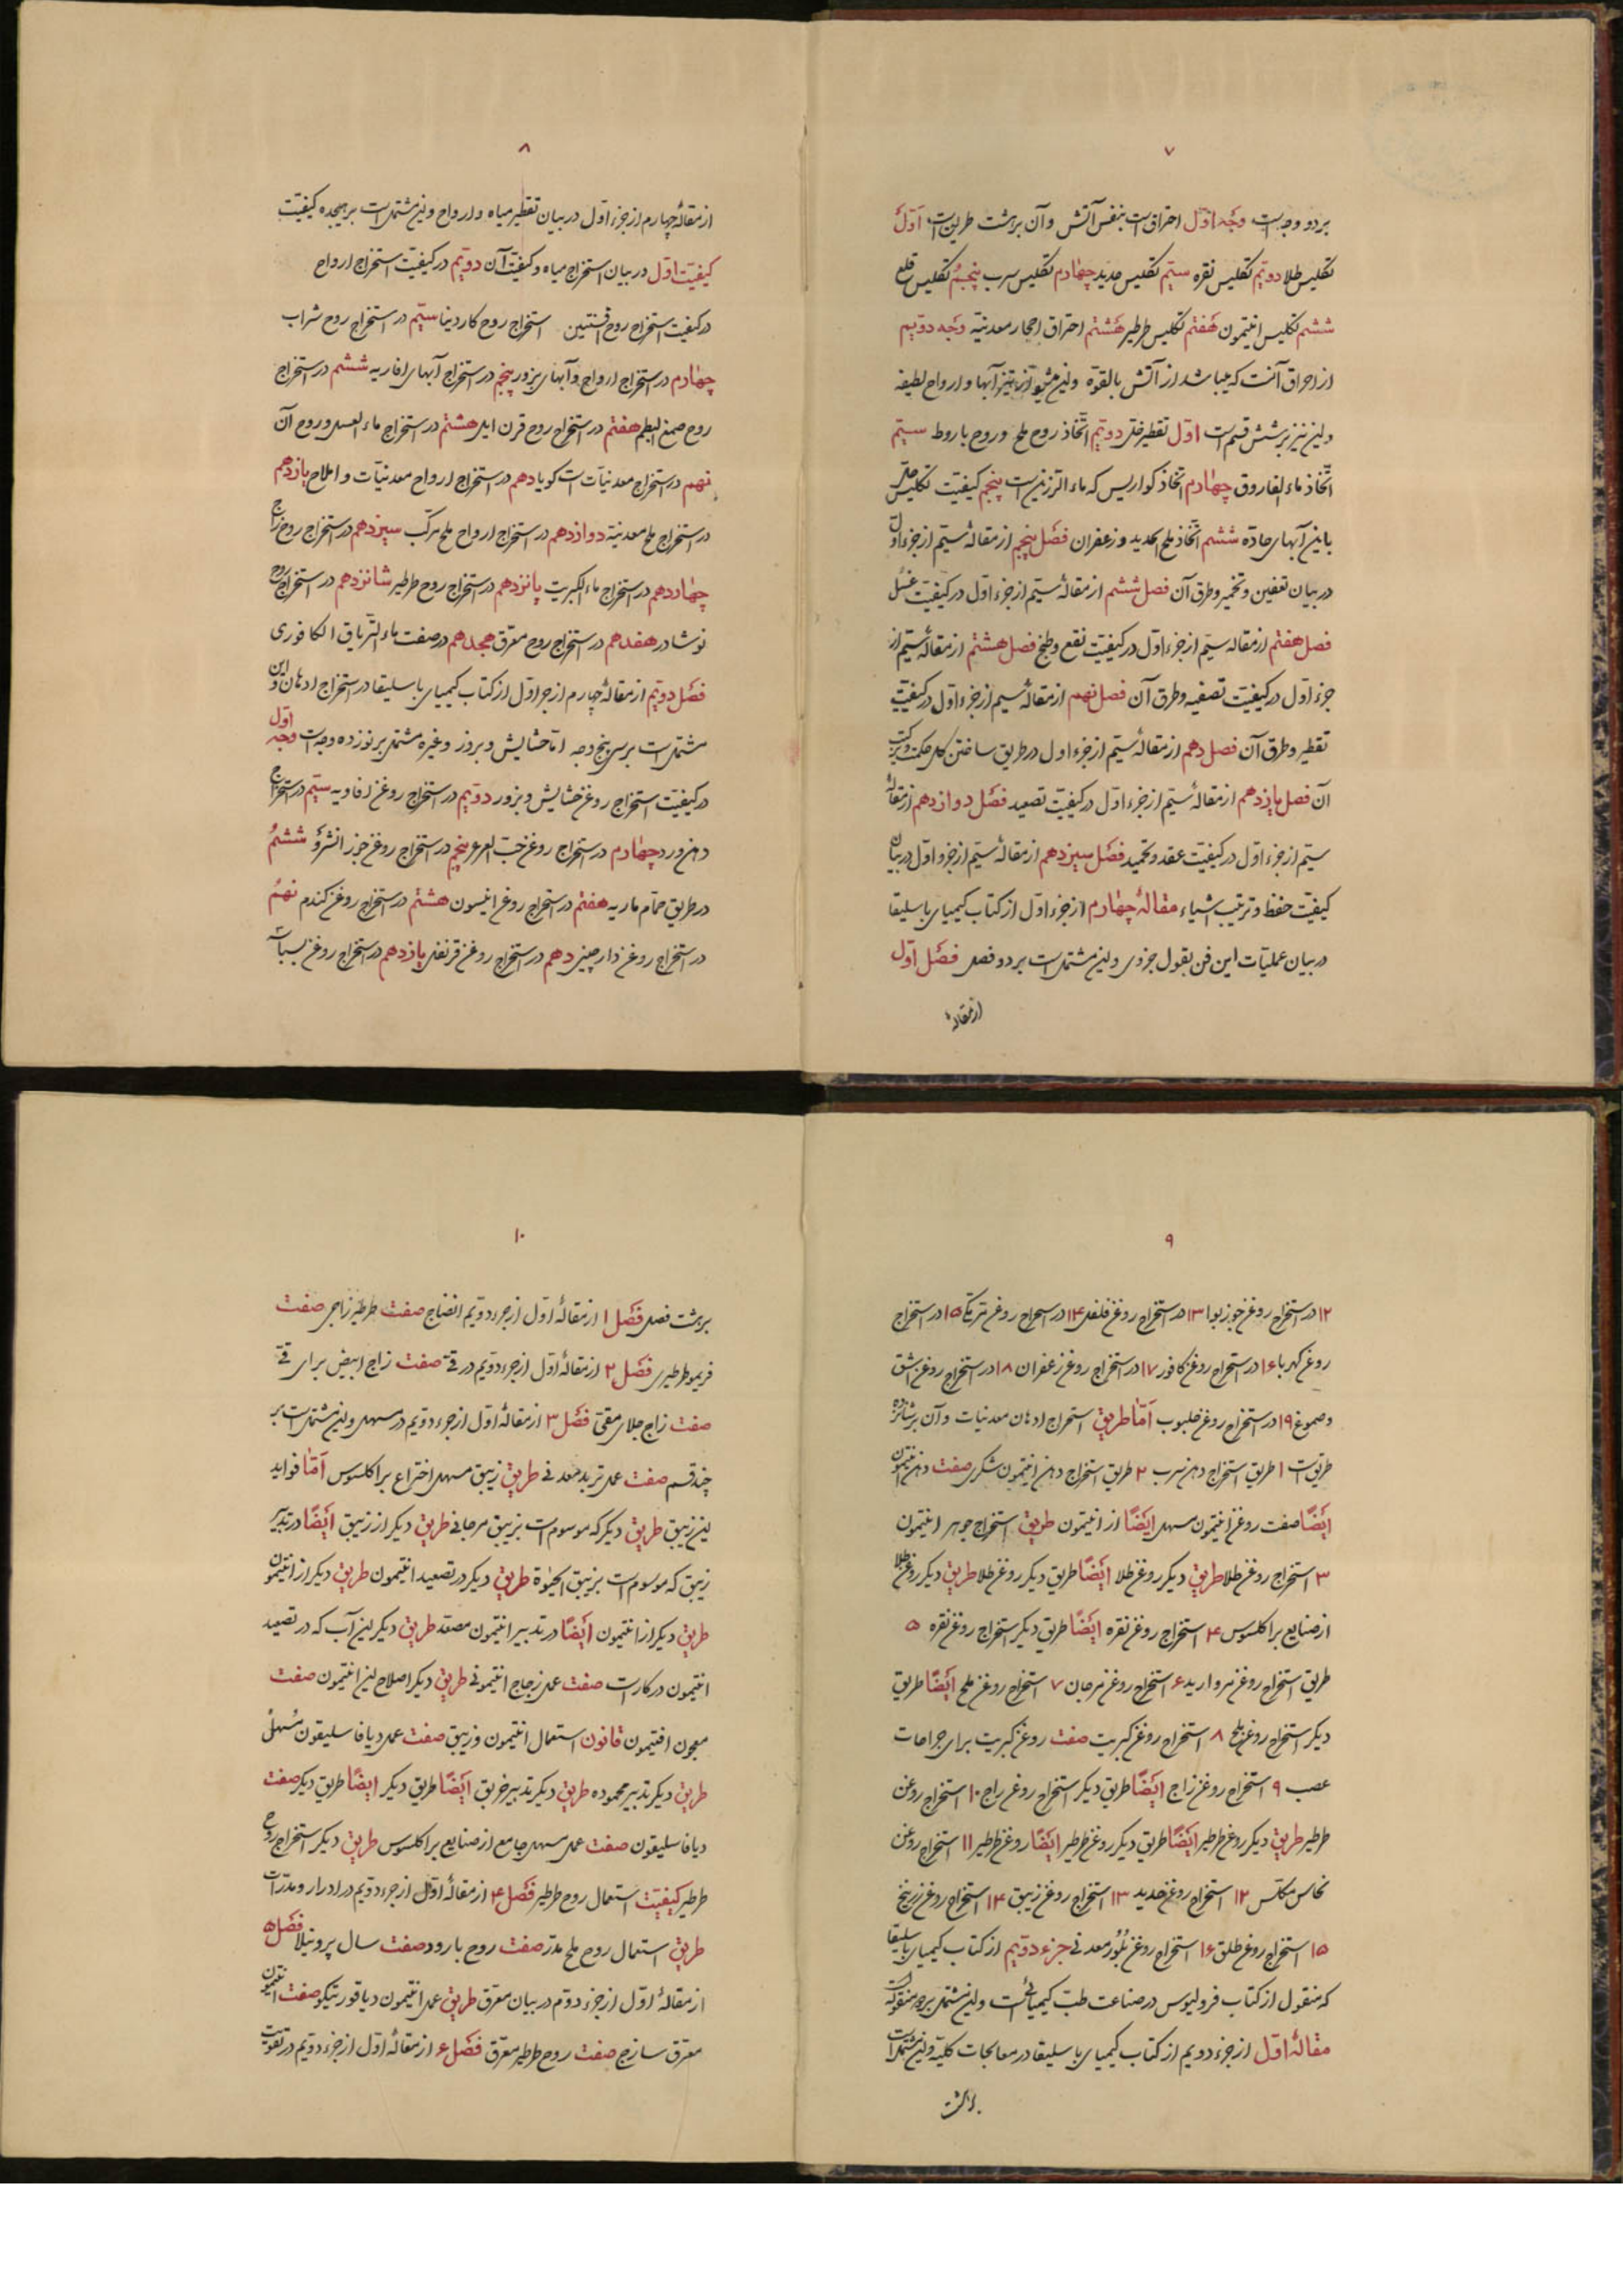 ۷
بر دو وجه است وجه اوّل احتراق است بنفس آتش و آن بر هشت طریق است اوّل
تکلیس طلا دویّم تکلیس نقره سیّم تکلیس حدید چهارم تکلیس سرب پنجم تکلیس قلع
ششم تکلیس انتیمون هفتم تکلیس طرطیر هشتم احتراق احجار معدنیّه وجه دویّم
از احراق آنست که میباشد از آتش بالقوّه و این آبها و ارواح لطیفه
و این نیز بر شش قسم است اوّل تقطیر خل دویّم اتّخاذ روح ملح و روح باروط سیّم
اتّخاذ ماء الفاروق چهارم اتّخاذ کواریس که ماء الرزین است پنجم کیفیّت تکلیس
باین آبهای حادّه ششم اتّخاذ ملح الحدید و زعفران فصل پنجم از مقالهٔ سیّم از جزء اوّل
در بیان تعفین و تخمیر و طرق آن فصل ششم از مقالهٔ سیّم از جزء اوّل در کیفیّت غسل
فصل هفتم از مقاله سیّم از جزء اوّل در کیفیّت نقع و طبخ فصل هشتم از مقالهٔ سیّم از
جزء اوّل در کیفیّت تصفیه و طرق آن فصل نهم از مقالهٔ سیم از جزء اوّل در کیفیّت
تقطیر و طرق آن فصل دهم از مقالهٔ سیّم از جزء اول در طریق ساختن کل حکمت و ترکیب
آن فصل یازدهم از مقالهٔ سیّم از جزء اوّل در کیفیّت تصعید فصل دوازدهم از مقالهٔ
سیّم از جزء اوّل در کیفیّت عقد و تجمید فصل سیزدهم از مقالهٔ سیّم از جزء اوّل در بیان
کیفیّت حفظ و ترتیب اشیاء مقالهٔ چهارم از جزء اوّل از کتاب کیمیای باسلیقا
در بیان عملیّات این فن بقول جزوی و این مشتمل است بر دو فصل فصل اوّل
از مقالهٔ
۸
از مقالهٔ چهارم از جزء اوّل در بیان تقطیر میاه و ارواح و این مشتمل است بر هیجده کیفیّت
کیفیّت اوّل در بیان استخراج میاه و کیفیّت آن دویّم در کیفیّت استخراج ارواح
در کیفیّت استخراج روح افسنتین استخراج روح کاردینا سیّم در استخراج روح شراب
چهارم در استخراج ارواح و آبهای بزور پنجم در استخراج آبهای افاویه ششم در استخراج
روح صمغ البطم هفتم در استخراج روح قرن ایل هشتم در استخراج ماء العسل و روح آن
نهم در استخراج معدنیّات است کویا دهم در استخراج ارواح معدنیّات و املاح یازدهم
در استخراج ملح معدنیّة دوازدهم در استخراج ارواح ملح مرکّب سیزدهم در استخراج روح زاج
چهاردهم در استخراج ماء الکبریت پانزدهم در استخراج روح طرطیر شانزدهم در استخراج روح
نوشادر هفدهم در استخراج روح معرّق هجدهم در صفت ماء التّریاق الکافوری
فصل دویّم از مقالهٔ چهارم از جزء اوّل از کتاب کیمیای باسلیقا در استخراج ادهان و این
مشتمل است بر سی پنج وجه امّا حشایش و بزور و غیره مشتمل بر نوزده وجه است وجه اوّل
در کیفیّت استخراج روغن حشایش و بزور دویّم در استخراج روغن افاویه سیّم در استخراج
دهن ورد چهارم در استخراج روغن حبّ العرعر پنجم در استخراج روغن ششم
در طریق حمّام ماریه هفتم در استخراج روغن انیسون هشتم در استخراج روغن کندم نهم
در استخراج روغن دارچینی دهم در استخراج روغن قرنفل یازدهم در استخراج روغن بسباسه
۹
۱۲ در استخراج روغن جوزبوا ۱۳ در استخراج روغن فلفل ۱۴ در استخراج روغن ۱۵ در استخراج
روغن کهربا ۱۶ در استخراج روغن کافور ۱۷ در استخراج روغن زعفران ۱۸ در استخراج روغن اشق
و صموغ ۱۹ در استخراج روغن حلبوب امّا طریق استخراج ادهان معدنیات و آن بر شانزده
طریق است ۱ طریق استخراج دهن سرب ۲ طریق استخراج دهن انتیمون شکری صفت دهن انتیمون
ایضًا صفت روغن انتیمون مسهل ایضًا از انتیمون طریق استخراج جوهر انتیمون
۳ استخراج روغن طلا طریق دیکر روغن طلا ایضًا طریق دیکر روغن طلا طریق دیکر روغن طلا
از صنایع براکلسوس ۴ استخراج روغن نقره ایضًا طریق دیکر استخراج روغن نقره ۵
طریق استخراج روغن مروارید ۶ استخراج روغن مرجان ۷ استخراج روغن ملح ایضًا طریق
دیکر استخراج روغن ملح ۸ استخراج روغن کبریت صفت روغن کبریت برای جراحات
عصب ۹ استخراج روغن زاج ایضًا طریق دیکر استخراج روغن زاج ۱۰ استخراج روغن
طرطیر طریق دیکر روغن طرطیر ایضًا طریق دیکر روغن طرطیر ایضًا روغن طرطیر ۱۱ استخراج روغن
نحاس مکلّس ۱۲ استخراج روغن حدید ۱۳ استخراج روغن زیبق ۱۴ استخراج روغن زرنیخ
۱۵ استخراج روغن طلق ۱۶ استخراج روغن بلّور معدنی جزء دویّم از کتاب کیمیای باسلیقا
که منقول از کتاب فرولیوس در صناعت طبّ کیمیائی است و این مشتمل بر دو مقوله است
مقالهٔ اوّل از جزء دویم از کتاب کیمیای باسلیقا در معالجات کلیّه و این مشتمل است
بر هشت
۱۰
بر هشت فصل فصل ۱ از مقالهٔ اوّل از جزء دویّم انضاج صفت طرطیر زاجی صفت
فریمو طرطیری فصل ۲ از مقالهٔ اوّل از جزء دویّم در قئ صفت زاج ابیض برای قئ
صفت زاج جلای مقئ فصل ۳ از مقالهٔ اوّل از جزء دویّم در مسهل و این مشتمل است بر
چند قسم صفت عمل تربد معدنی طریق زیبق مسهل اختراع براکلسوس امّا فواید
این زیبق طریق دیکر که موسوم است بزیبق مرجانی طریق دیکر از زیبق ایضًا در تدبیر
زیبق که موسوم است بزیبق الحیوة طریق دیکر در تصعید انتیمون طریق دیکر از انتیمون
طریق دیکر از انتیمون ایضًا در تدبیر انتیمون مصعّد طریق دیکر این آب که در تصعید
انتیمون در کار است صفت عمل زجاج انتیمونی طریق دیکر اصلاح این انتیمون صفت
معجون افتیمون قانون استعمال انتیمون و زیبق صفت عمل دیافاسلیقون مسهل
طریق دیکر تدبیر محموده طریق دیکر تدبیر خربق ایضًا طریق دیکر ایضًا طریق دیکر صفت
دیافاسلیقون صفت عمل مسهل جامع از صنایع براکلسوس طریق دیکر استخراج روح
طرطیر کیفیّت استعمال روح طرطیر فصل ۴ از مقالهٔ اوّل از جزء دویّم در ادرار و مدرّات
طریق استعمال روح ملح مدرّ صفت روح بارود صفت سال پرونیلا فصل ۵
از مقالهٔ اوّل از جزء دوّم در بیان معرق طریق عمل انتیمون دیافورتیکو صفت انتیمون
معرق سازج صفت روح طرطیر معرّق فصل ۶ از مقالهٔ اوّل از جزء دویّم در تقویت